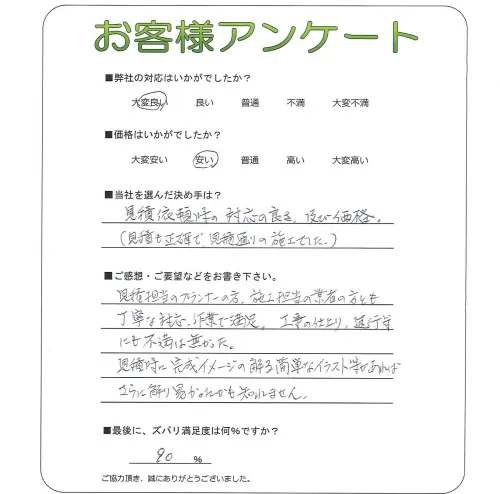 お客様アンケート
■弊社の対応はいかがでしたか?
大変良い 良い 普通 不満 大変不満
■価格はいかがでしたか?
大変安い 安い 普通 高い 大変高い
■当社を選んだ決め手は?
見積依頼時の対応の良さ、及び価格。
(見積も正確で見積通りの施工でした。)
■ご感想・ご要望などをお書き下さい。
見積担当のプランナーの方、施工担当の業者の方とも
丁寧な対応、作業で満足。工事の仕上り、進行等
にも不満は無かった。
見積時に完成イメージの解る簡単なイラスト等があれば
さらに解り易かったかも知れません。
■最後に、ズバリ満足度は何%ですか?
90 %
ご協力頂き、誠にありがとうございました。